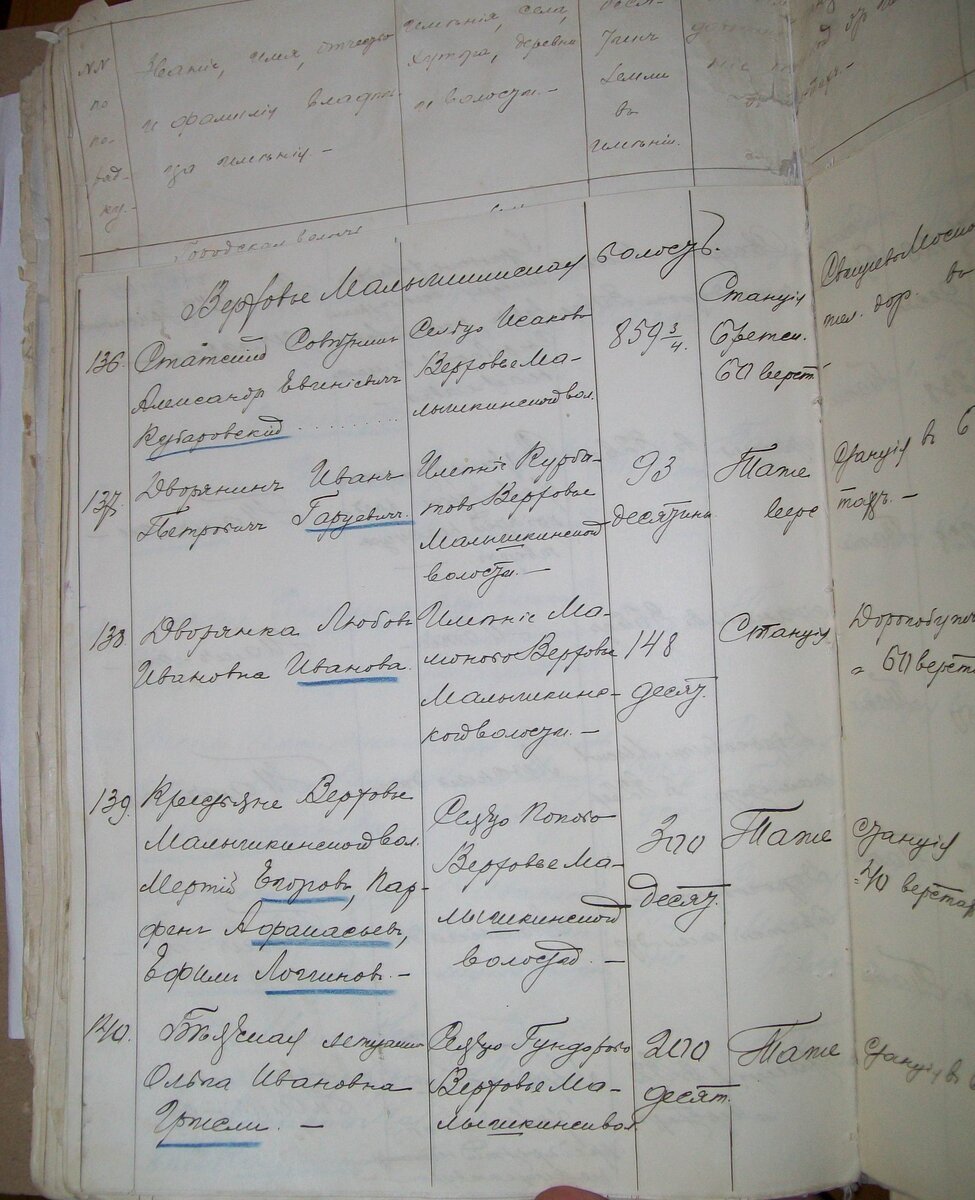 NN по по- ряд- ку.
Званіе, имя, отчество
и фамилія владѣль-
ца имѣнія. —
имѣнія, села,
хутора, деревни
и волости. —
земли
въ
имѣніи.
Верховье Малышкинская волость.
136. Статскій Совѣтникъ
Александръ Евгеніевичъ
Кубаровскій
Сельцо Исаково
Верховье Ма-
лышкинской вол.
859 3/4.
Станція
60 верст
137. Дворянинъ Иванъ
Петровичъ Гарцевичъ.
Имѣніе Курба-
тово Верховье
Малышкинской
волости. —
93
десятины
Таже
верс
Станція въ 6
138. Дворянка Любовь
Ивановна Иванова.
Имѣніе Ма-
моново Верховье
Малышкинс-
кой волости. —
148
десят.
Станція
60 верст
139. Крестьяне Верховье
Малышкинской вол.
Егоровъ, Пар-
фенъ Афанасьевъ,
Ефимъ Логгиновъ. —
Сельцо Попово
Верховье Ма-
лышкинской
волости. —
300
десят.
Таже
Станція
40 верстах
140.
Ольга Ивановна
Сельцо Гундорово
Верховье Ма-
лышкинск. вол.
200
десят.
Таже
Станція въ